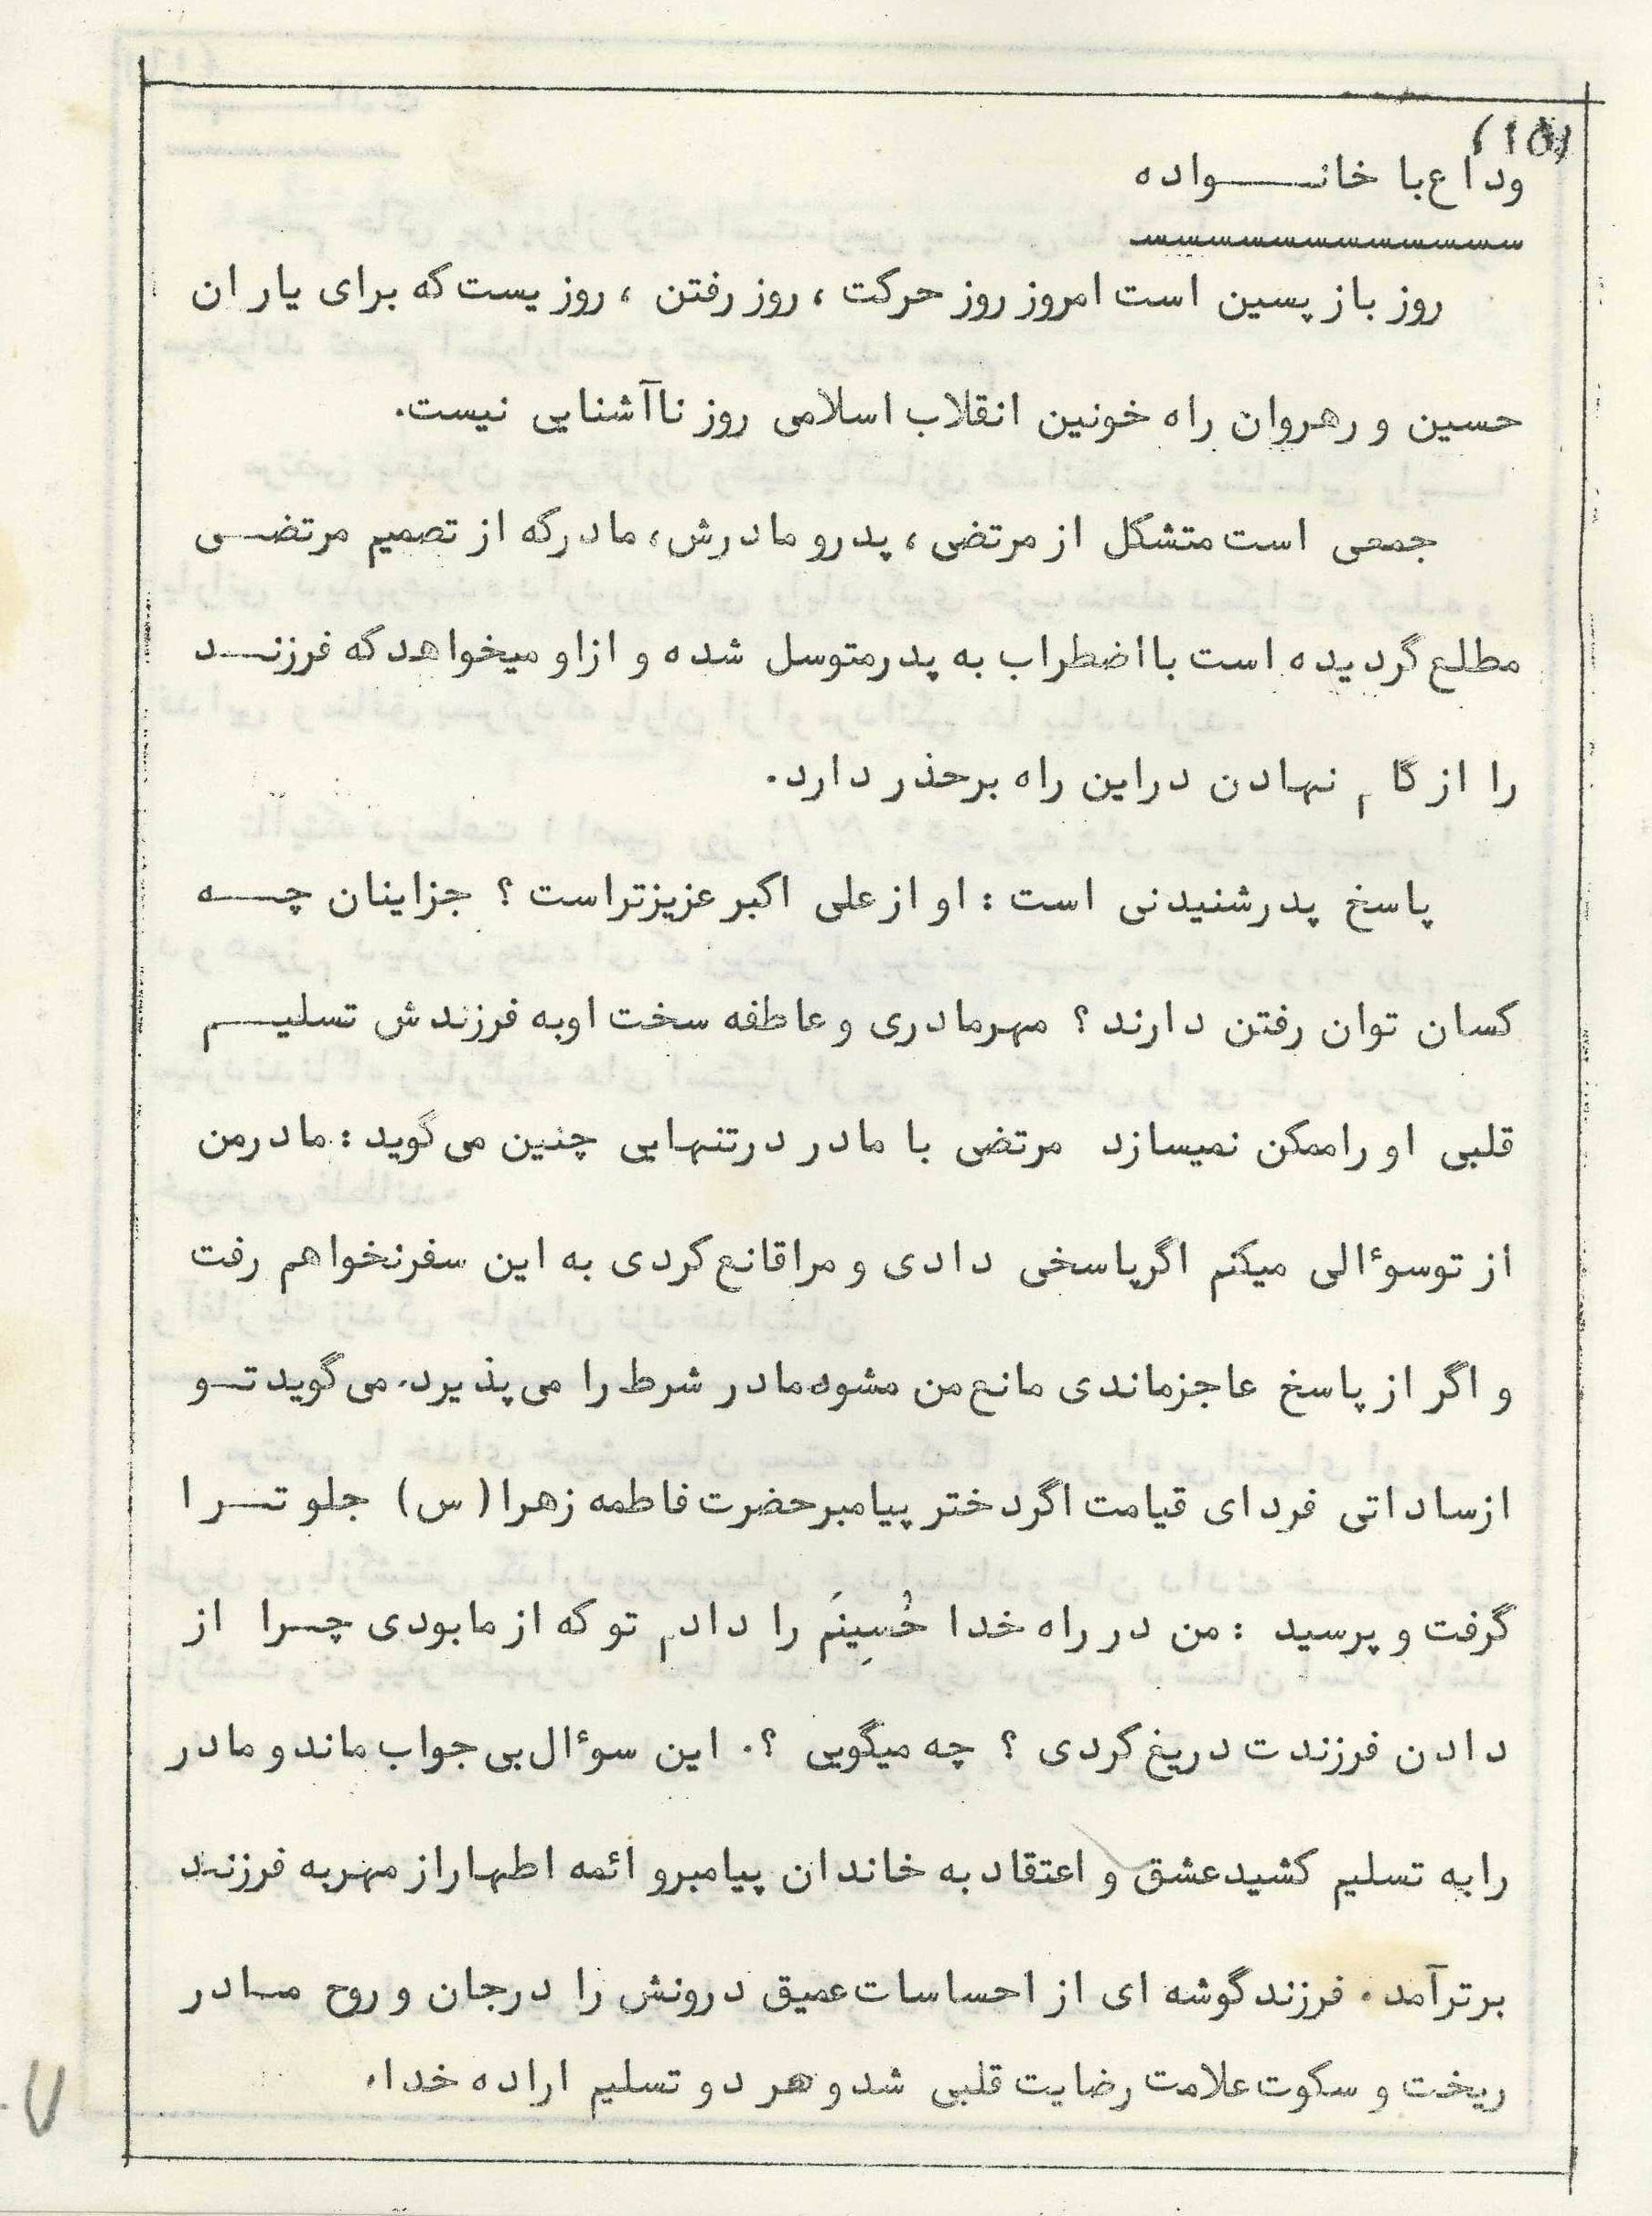 (۱۵)
وداع با خانواده
روز باز پسین است امروز روز حرکت ، روز رفتن ، روزیست که برای یاران
حسین و رهروان راه خونین انقلاب اسلامی روز ناآشنایی نیست.
جمعی است متشکل از مرتضی ، پدر و مادرش، مادر که از تصمیم مرتضی
مطلع گردیده است با اضطراب به پدر متوسل شده و از او میخواهد که فرزند
را از گام نهادن در این راه برحذر دارد.
پاسخ پدر شنیدنی است : او از علی اکبر عزیزتر است ؟ جز اینان چه
کسان توان رفتن دارند ؟ مهر مادری و عاطفه سخت او به فرزندش تسلیم
قلبی او را ممکن نمیسازد مرتضی با مادر در تنهایی چنین می گوید : مادر من
از تو سوءالی میکنم اگر پاسخی دادی و مرا قانع کردی به این سفر نخواهم رفت
و اگر از پاسخ عاجز ماندی مانع من مشو. مادر شرط را می پذیرد. می گوید تو
از ساداتی فردای قیامت اگر دختر پیامبر حضرت فاطمه زهرا (س) جلو ترا
گرفت و پرسید : من در راه خدا حُسِینَم را دادم تو که از ما بودی چرا از
دادن فرزندت دریغ کردی ؟ چه میگویی ؟. این سوءال بی جواب ماند و مادر
را به تسلیم کشید عشق و اعتقاد به خاندان پیامبر و ائمه اطهار از مهر به فرزند
برتر آمد. فرزند گوشه ای از احساسات عمیق درونش را در جان و روح مادر
ریخت و سکوت علامت رضایت قلبی شد و هر دو تسلیم اراده خدا.